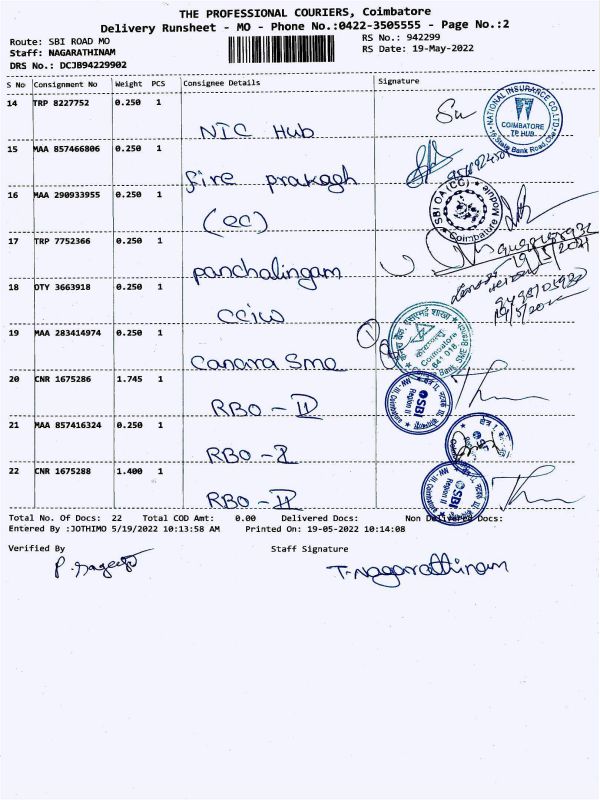 THE PROFESSIONAL COURIERS, Coimbatore
Delivery Runsheet - MO - Phone No.:0422-3505555 - Page No.:2
Route: SBI ROAD MO
RS No.: 942299
Staff: NAGARATHINAM
RS Date: 19-May-2022
DRS No.: DCJB94229902
S No Consignment No Weight PCS Consignee Details Signature
14 TRP 8227752 0.250 1
NIC Hub
NATIONAL INSURANCE CO.LTD
COIMBATORE
TP HUB
State Bank Road
15 MAA 857466806 0.250 1
fire prakash
16 MAA 290933955 0.250 1
(ec)
SBI OA (CC)
Coimbatore Module
17 TRP 7752366 0.250 1
panchalingam
18 OTY 3663918 0.250 1
CCIW
19 MAA 283414974 0.250 1
Canara Sme
Coimbatore
641 018
20 CNR 1675286 1.745 1
RBO - II
SBI
Region II
21 MAA 857416324 0.250 1
RBO - I
22 CNR 1675288 1.400 1
RBO - II
SBI
Region II
Total No. Of Docs: 22 Total COD Amt: 0.00 Delivered Docs: Non Delivered Docs:
Entered By :JOTHIMO 5/19/2022 10:13:58 AM Printed On: 19-05-2022 10:14:08
Verified By Staff Signature
T. Nagarathinam